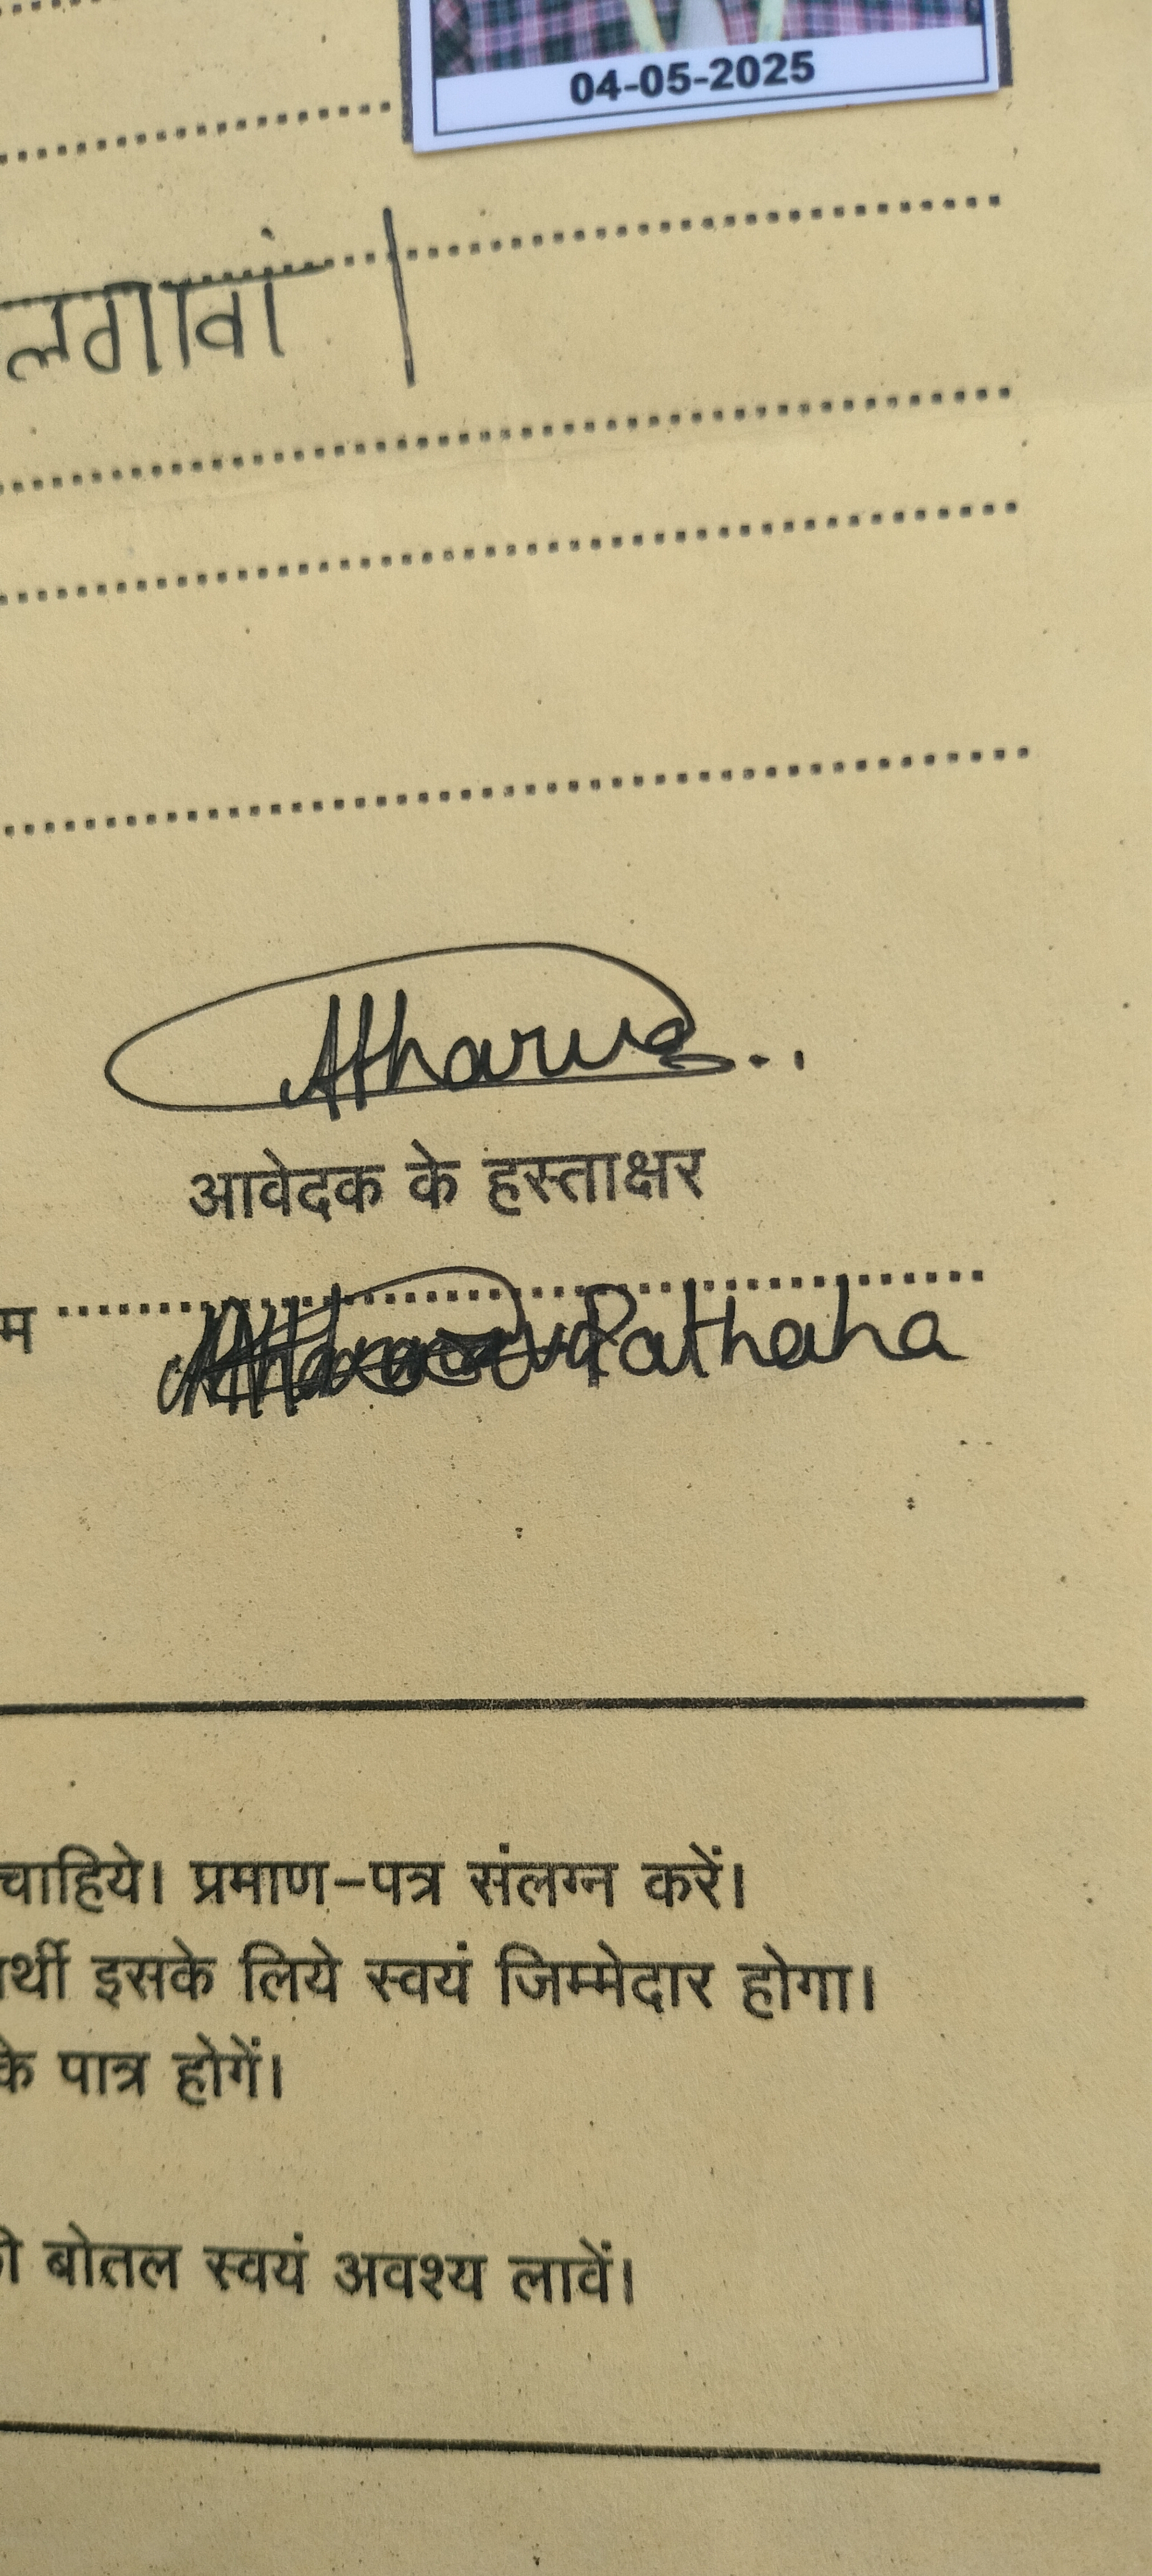 04-05-2025
लगावां |
Atharva..
आवेदक के हस्ताक्षर
म Pathaha
चाहिये। प्रमाण-पत्र संलग्न करें।
र्थी इसके लिये स्वयं जिम्मेदार होगा।
के पात्र होगें।
बोतल स्वयं अवश्य लावें।